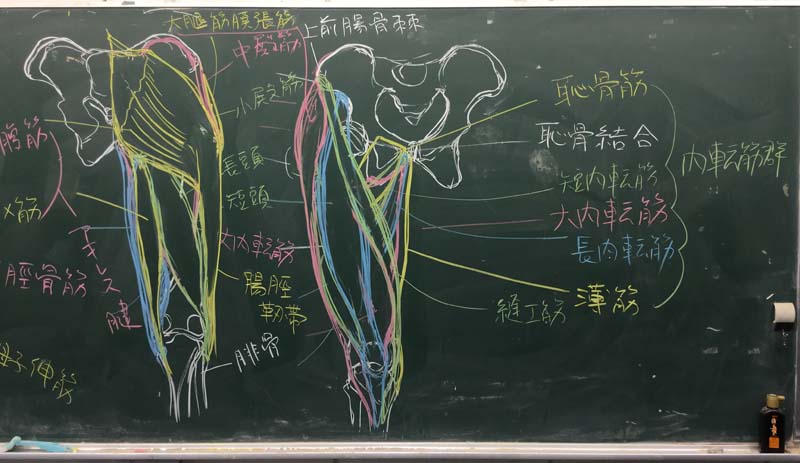 大腿筋膜張筋
中殿筋
上前腸骨棘
小殿筋
長頭
短頭
大内転筋
腸脛
靭帯
腓骨
脛骨筋
アキレス
腱
恥骨筋
恥骨結合
短内転筋
大内転筋
長内転筋
薄筋
縫工筋
内転筋群
伸筋